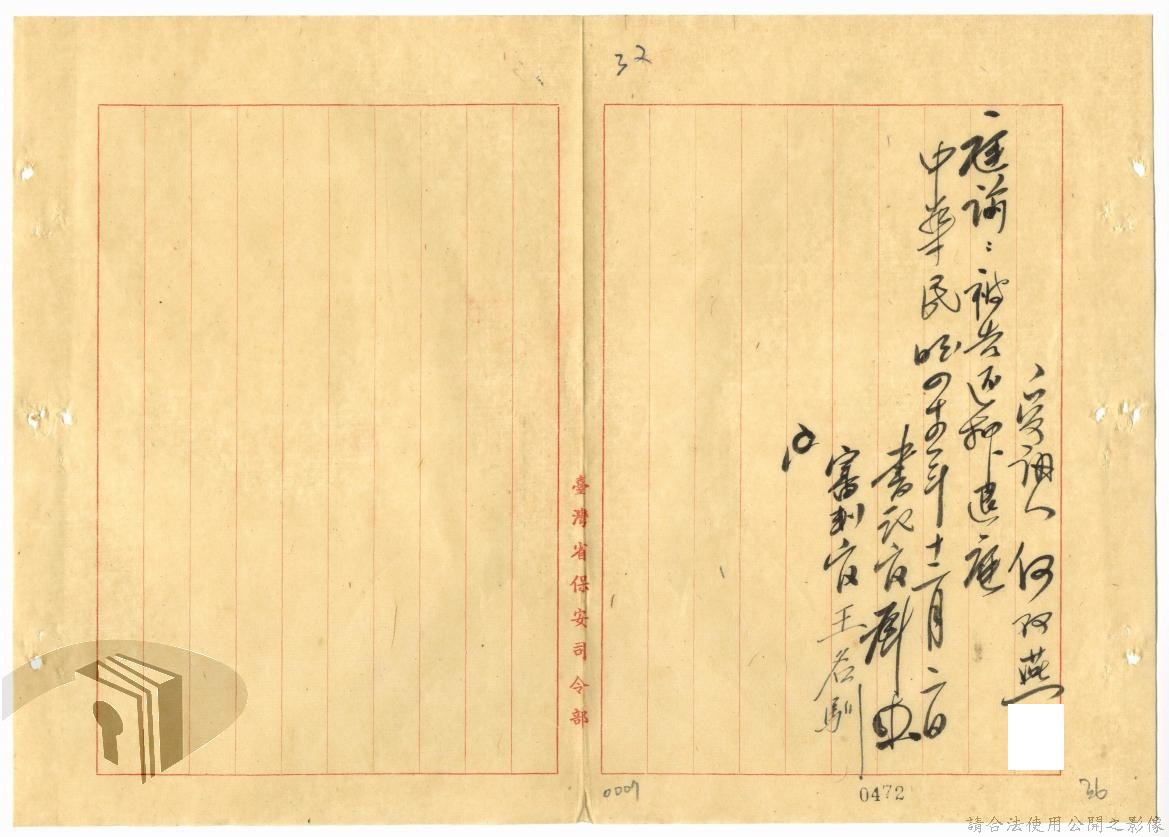 32
受訊人 何双燕
庭諭：被告還押、退庭
中華民國四十五年十二月二日
書記官
審判官 王名馴
臺灣省保安司令部
0472
36
請合法使用公開之影像